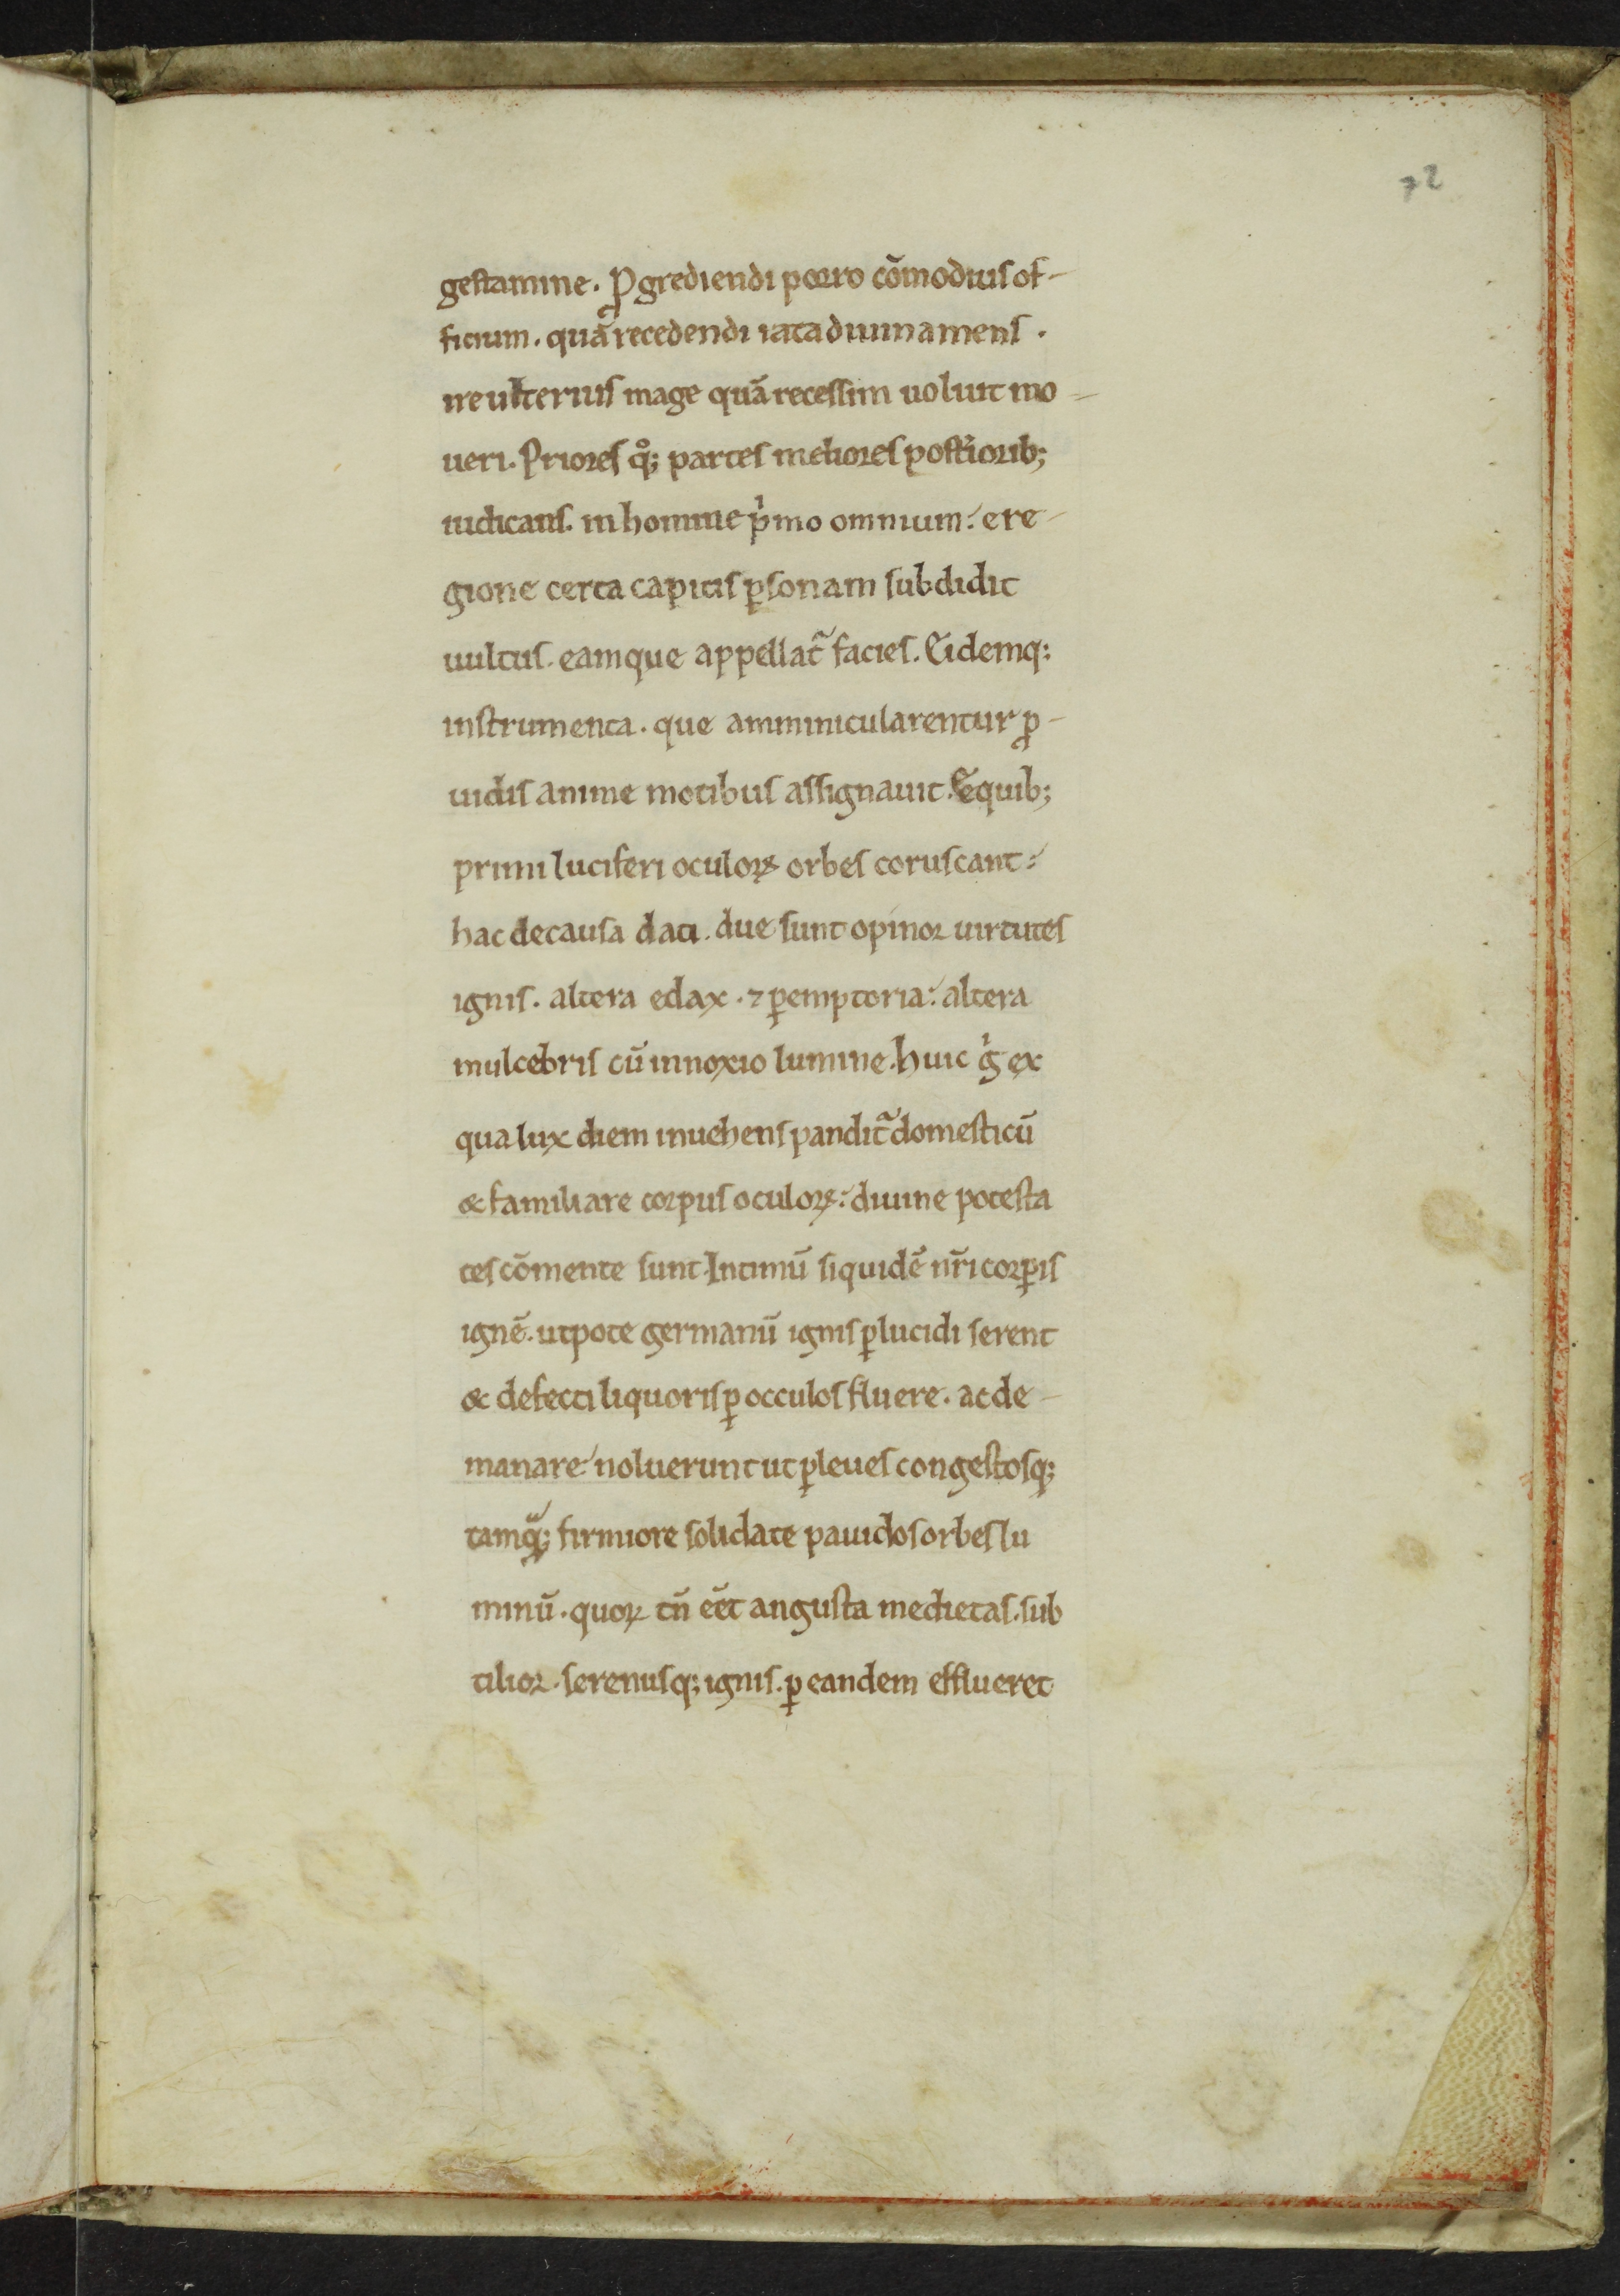 72
gestamine. ꝓgrediendi porro cōmodius of-
ficium. quā recedendi rata diuina mens.
ire ulterius mage quā recessim uoluit mo-
ueri. Priores qͦ; partes meliores postioribꝫ
iudicans. in homine pͥmo omnium: e re-
gione certa capitis ꝑsonam subdidit
uultus. eamque appellat᷑ facies. Eidemq:
instrumenta. que amminicularentur ꝓ-
uidis anime motibus assignauit. E quibꝫ
primi luciferi oculoꝝ orbes coruscant:
hac de causa dati. due sunt opinor uirtutes
ignis. altera edax. ⁊ ꝑemptoria: altera
mulcebris cū innoxio lumine. huic gͥ ex
qua lux diem inuehens pandit᷑ domesticū
& familiare corpus oculoꝝ: diuine potesta
tes cōmente sunt. Intimū siquidē nr̄i corꝑis
ignē. utpote germanū ignis ꝑlucidi serent
& defecti liquoris ꝑ occulos fluere. ac de-
manare noluerunt ut ꝑ leues congestosqꝫ
tamqꝫ firmiore solidate pauidos orbes lu
minū. quoꝝ tn̄ eēt angusta medietas. sub
tilior. serenusqꝫ ignis. ꝑ eandem efflueret